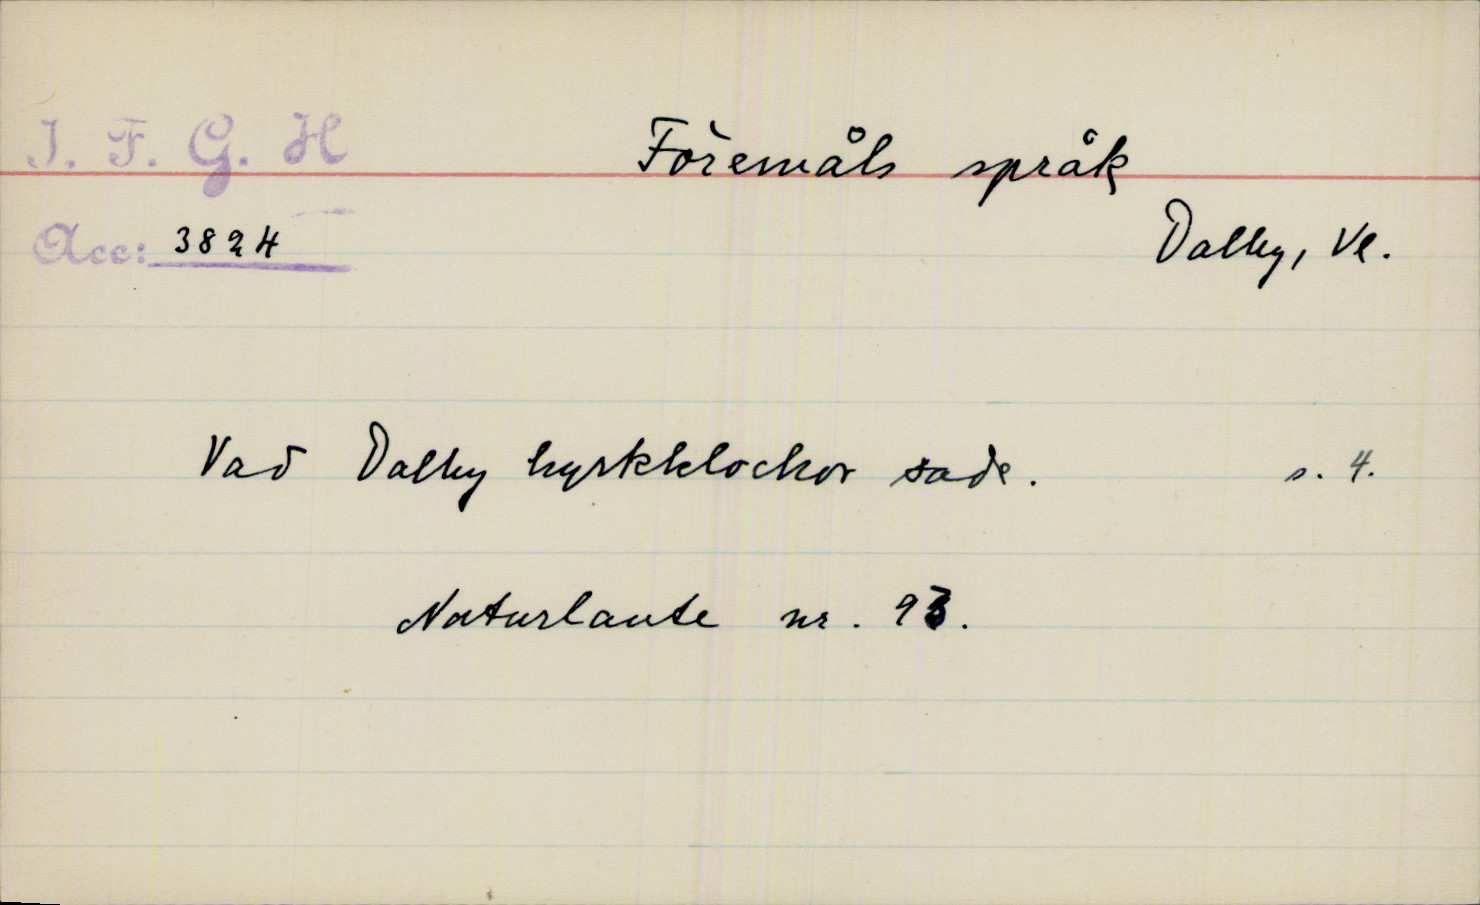 I. F. G. H
Föremåls språk
Acc: 3824
Dalby, Vl.
Vad Dalby kyrkklockor sade. s. 4.
Naturlaute nr. 93.